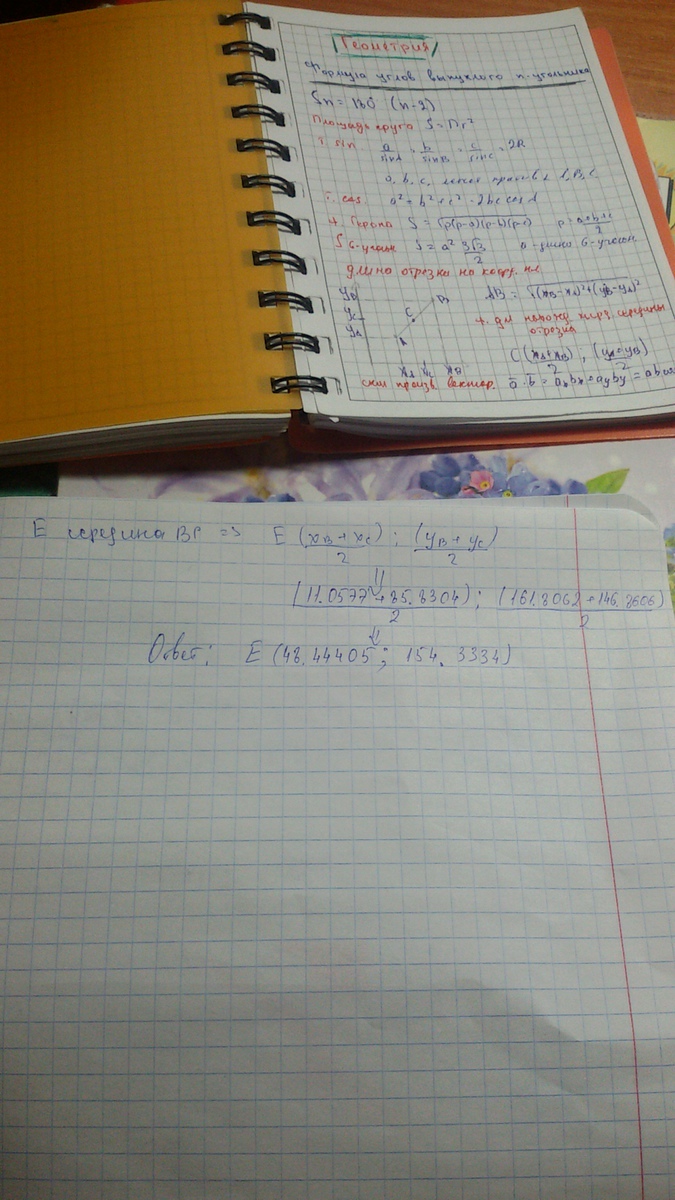 Геометрия
Формула углов выпуклого n-угольника
Sn = 180 (n-2)
Площадь круга S = Пr²
т. sin a/sinA = b/sinB = c/sinC = 2R
a, b, c, лежат против A, B, C
т. cos. a² = b² + c² - 2bc cos A
т. Герона S = √p(p-a)(p-b)(p-c) p = a+b+c/2
S 6-угольн S = a² 3√3/2 a - длина 6-угольн.
длина отрезка на коорд. пл
yB B AB = √(xB-xA)²+(yB-yA)²
yC C
yA A
т. дл нахожд коорд. середины
отрезка
xA xC xB C (xA+xB)/2 ; (yA+yB)/2
скал произв вектор. a · b = axbx + ayby = ab cos
E середина BC => E (xB + xC)/2 ; (yB + yC)/2
(11.0577 + 85.8304)/2 ; (161.8062 + 146.8606)/2
Ответ: E (48.44405 ; 154.3334)